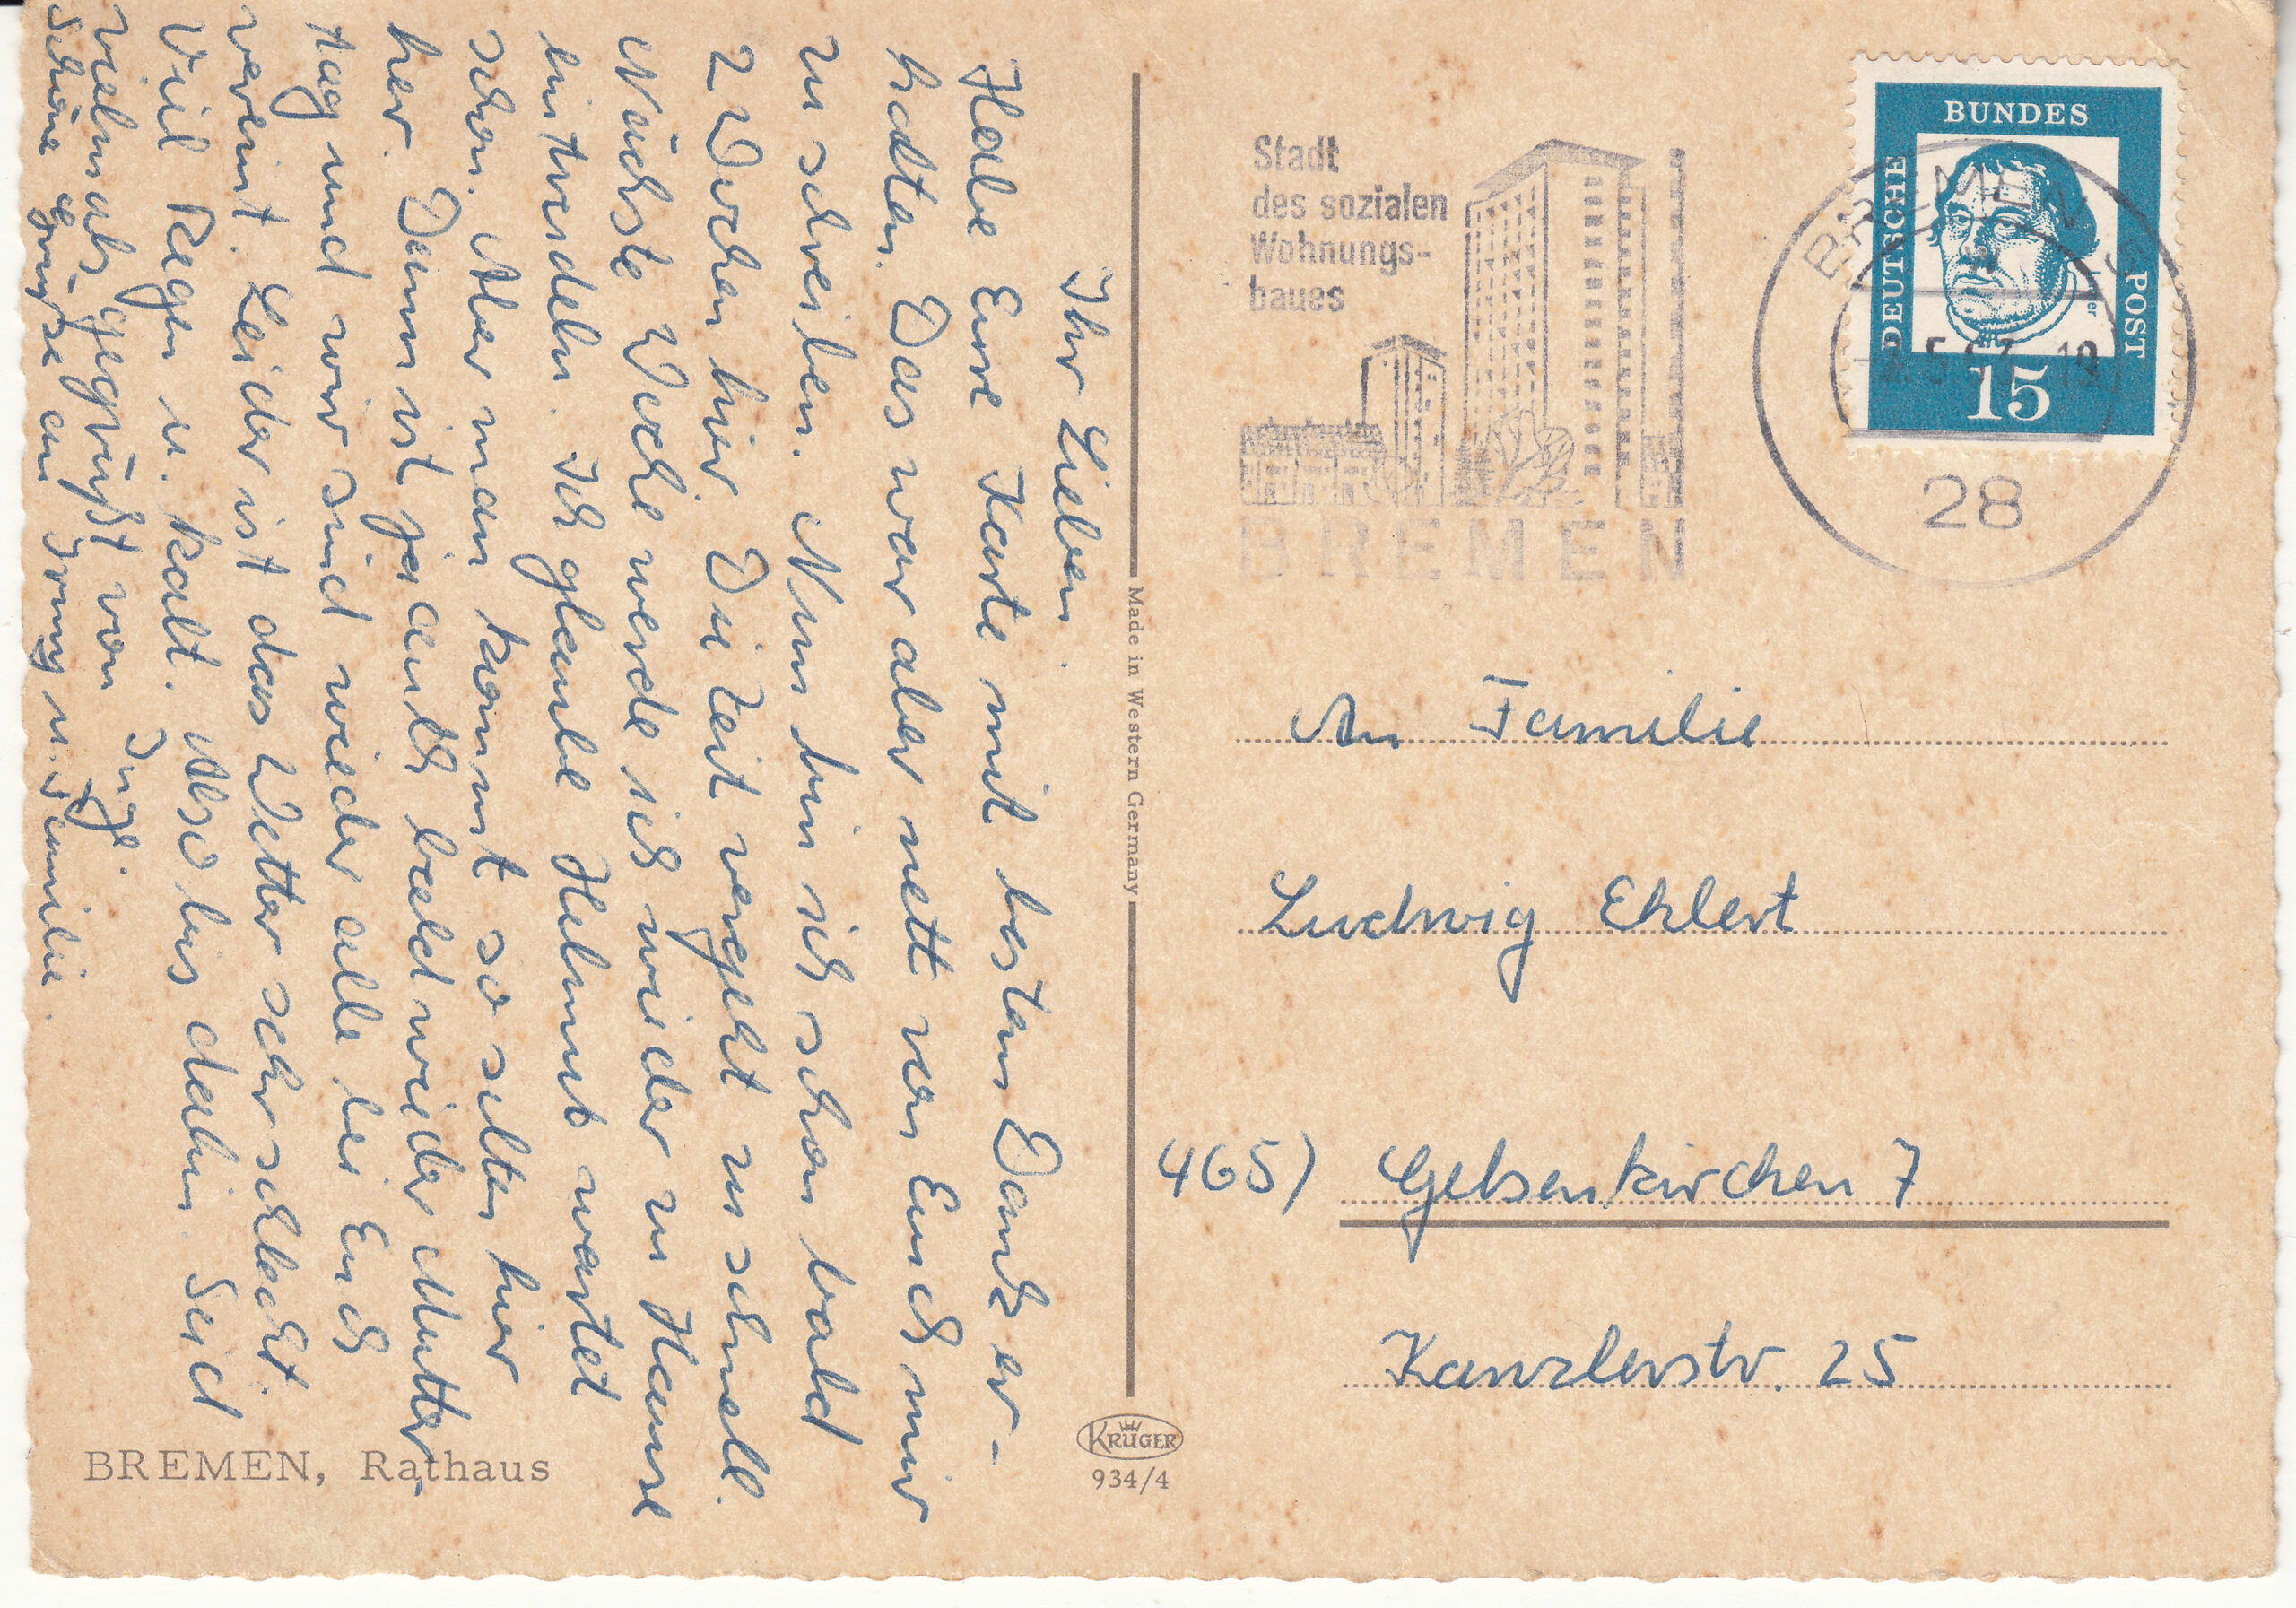 Ihr Lieben.
Habe Eure Karte mit bestem Dank er-
halten. Das war aber nett von Euch mir
zu schreiben. Nun bin ich schon bald
2 Wochen hier. Die Zeit vergeht zu schnell.
Nächste Woche werde ich wieder zu Hause
eintrudeln. Ich glaube Helmut wartet
schon. Aber man kommt so selten hier
her. Dann ist ja auch bald wieder Mutter-
tag und wir sind wieder alle bei Euch
vereint. Leider ist das Wetter sehr schlecht.
Viel Regen u. kalt. Also bis dahin. Seid
vielmals gegrüßt von Inge.
Schöne Grüße an u. Familie.
BREMEN, Rathaus
Made in Western Germany
KRÜGER
934/4
Stadt
des sozialen
Wohnungs-
baues
BREMEN
BUNDES
DEUTSCHE
POST
15
BREMEN
19
28
An Familie
Ludwig Ehlert
465) Gelsenkirchen 7
Kanzlerstr. 25